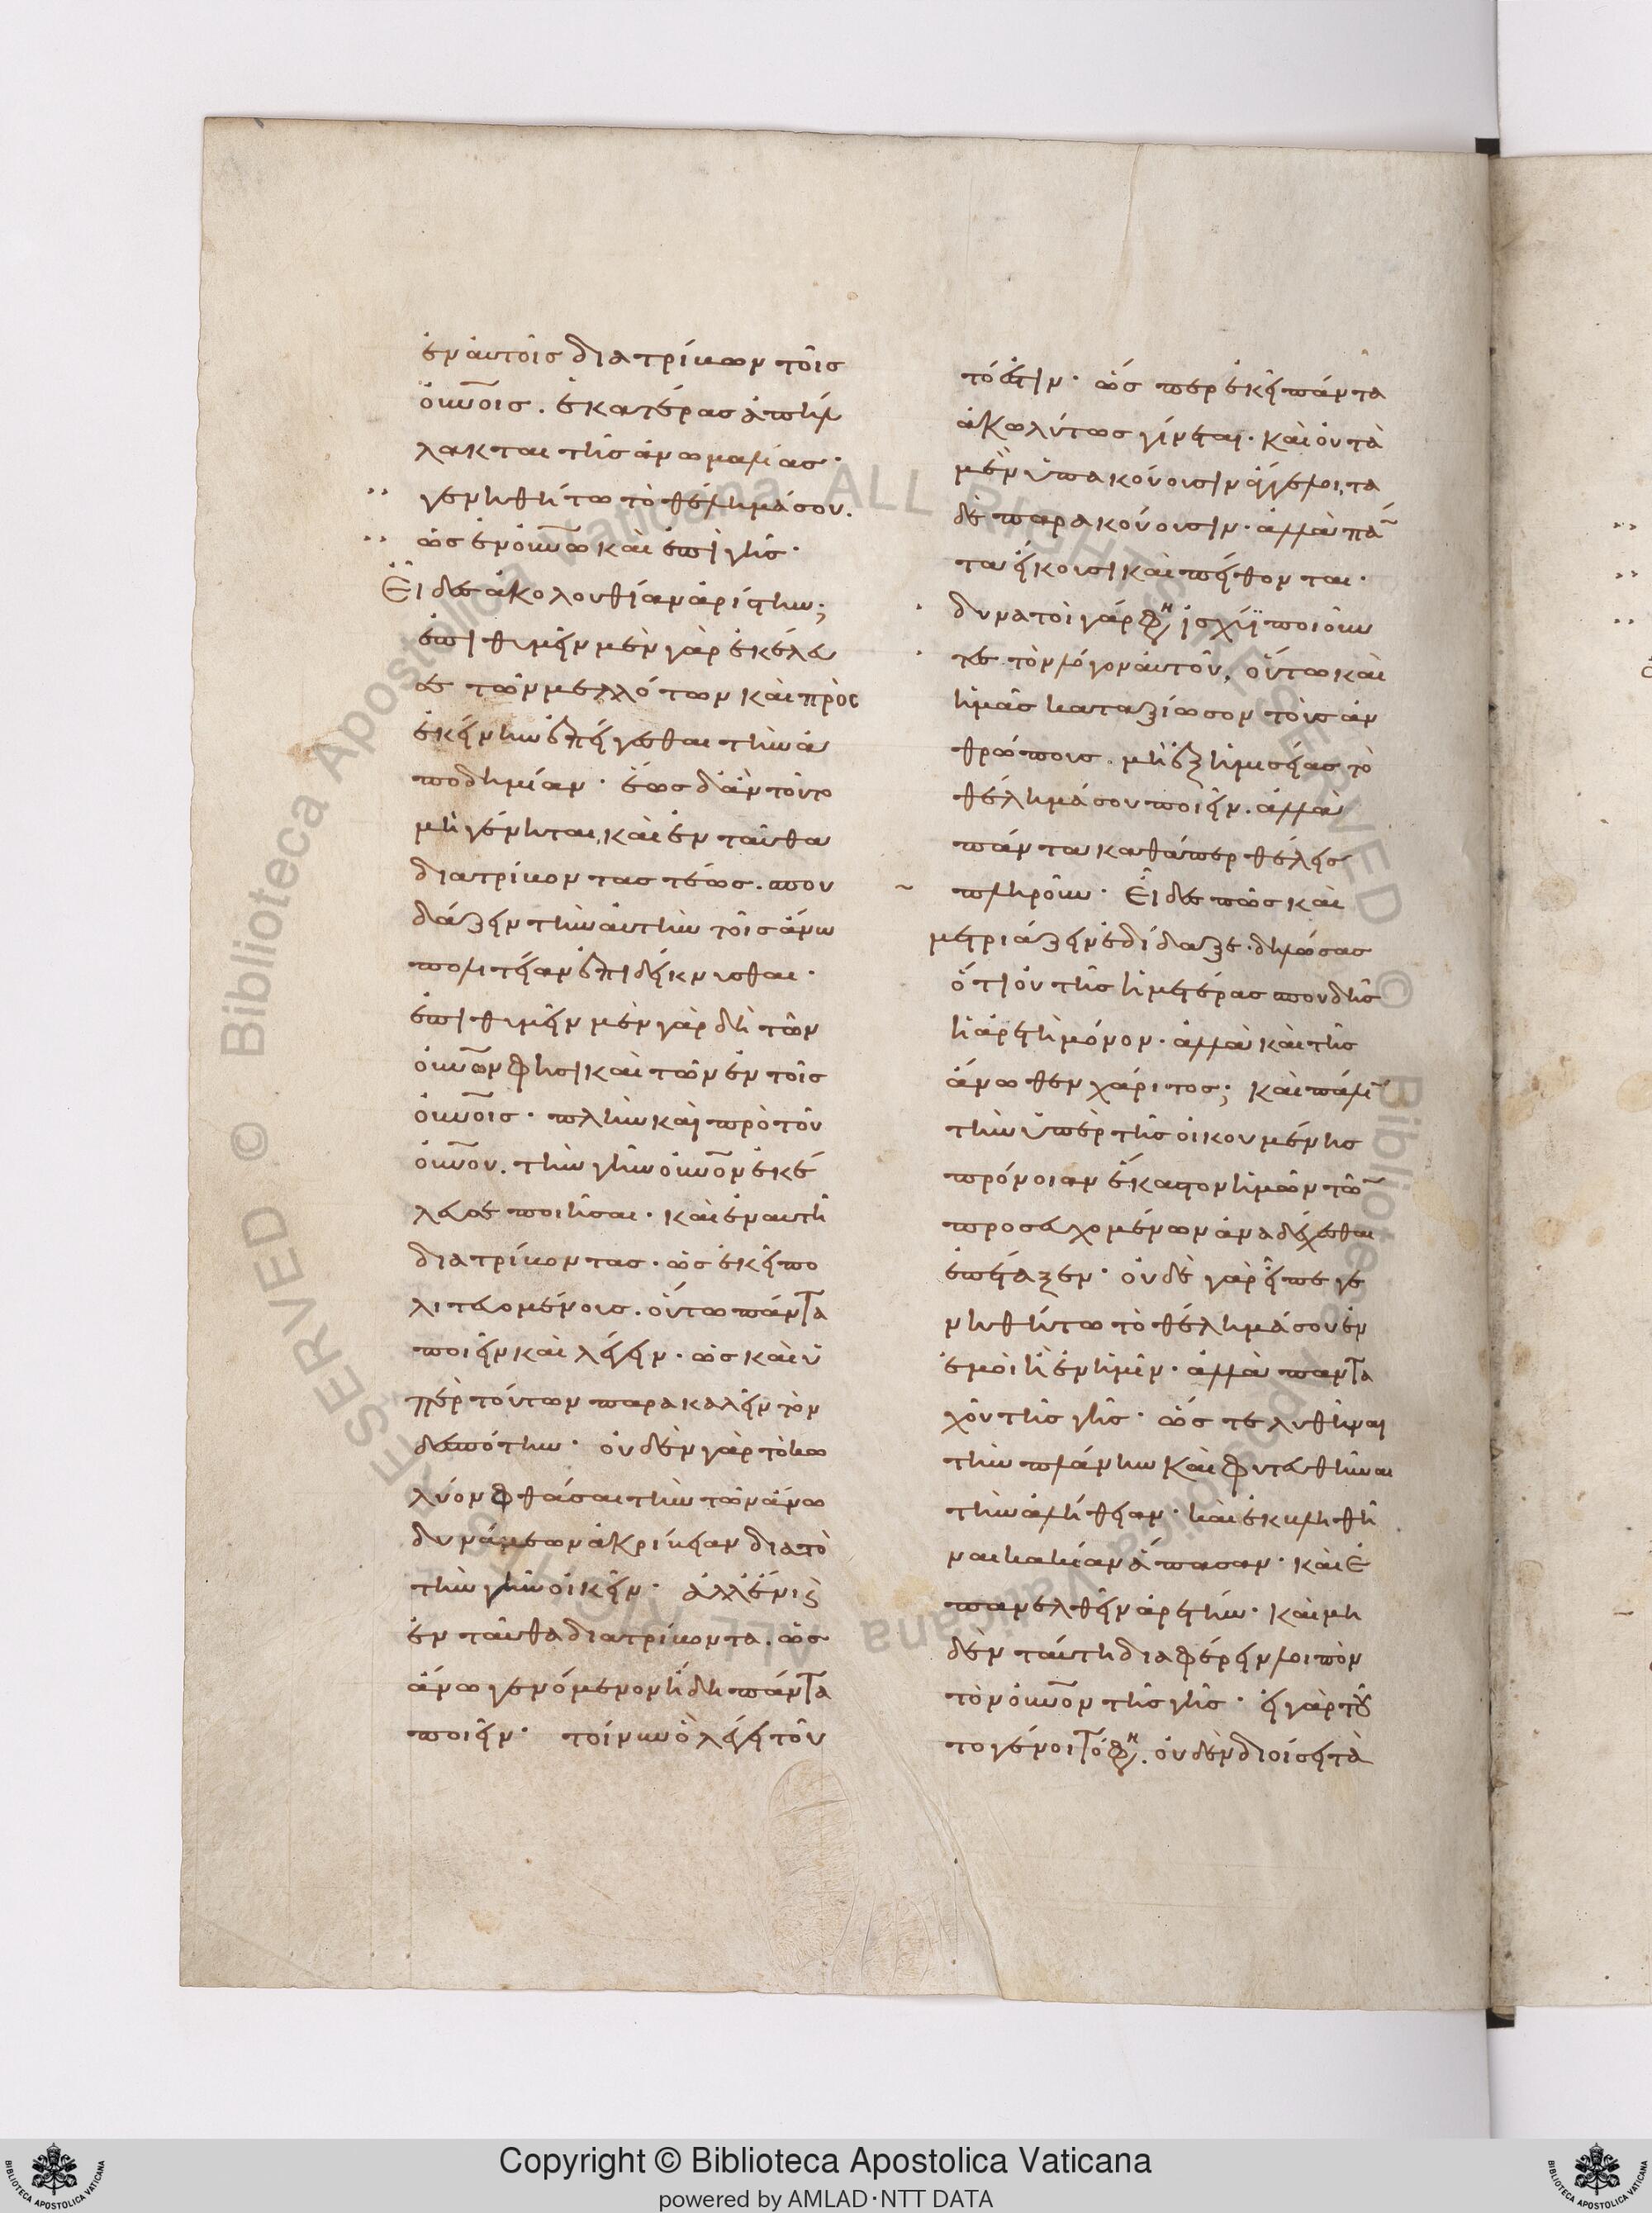 ἐν αὐτοῖς διατρίβων τοῖς
οὐνοῖς. ἑκατέρας ἀπήλ
λακται τῆς ἀνωμαλίας·
γενηθήτω τὸ θέλημά σου.
ὡς ἐν οὐνῶ καὶ ἐπὶ γῆς·
Εἶδες ἀκολουθίαν ἀρίστην;
ἐπιθυμεῖν μὲν γὰρ ἐκέλευ
σε τῶν μελλόντων καὶ πρὸς
ἐκείνην ἐπείγεσθαι τὴν ἀ
ποδημίαν· ἕως δ' ἂν τοῦτο
μὴ γένηται, καὶ ἐνταῦθα
διατρίβοντας τέως. σπου
δάζειν τὴν αὐτὴν τοῖς ἄνω
πολιτείαν ἐπιδείκνυσθαι·
ἐπιθυμεῖν μὲν γὰρ δεῖ τῶν
οὐνῶν φησὶ καὶ τῶν ἐν τοῖς
οὐνοῖς· πλὴν καὶ πρὸ τοῦ
οὐνοῦ. τὴν γῆν οὐνὸν ἐκέ
λευσε ποιῆσαι· καὶ ἐν αυτῆ
διατρίβοντας· ὡς ἐκεῖ πο
λιτευομένους. οὕτω πάντα
ποιεῖν καὶ λέγειν· ὡς καὶ ὑ
πὲρ τούτων παρακαλεῖν τὸν
δεσπότην· οὐδὲν γὰρ τὸ κω
λύον φθάσαι τὴν τῶν ἄνω
δυνάμεων ἀκρίβειαν διὰ τὸ
τὴν γῆν οἰκεῖν· ἀλλ' ἔνι ϛ
ἐνταῦθα διατρίβοντα. ὡς
ἄνω γενόμενον ἤδη πάντα
ποιεῖν· τοίνυν ὃ λέγει τοῦ
τό ἐστιν· ὥσπερ ἐκεῖ πάντα
ἀκωλύτως γίνεται· καὶ οὐ τὰ
μὲν ὑπακούουσιν ἄγγελοι, τὰ
δὲ παρακούουσιν· ἀλλὰ πά
τα εἴκουσι καὶ πείθονται·
δυνατοὶ γάρ φη ἰσχύϊ ποιοῦν
τες τὸν λόγον αὐτοῦ, οὕτω καὶ
ἡμᾶς καταξίωσον τοὺς ἀν
θρώπους. μὴ ἐξ ἡμισείας τὸ
θέλημά σου ποιεῖν. ἀλλὰ
πάντα καθάπερ θέλεις
πληροῦν· Εἶδες πῶς καὶ
μετριάζειν ἐδίδαξε. δηλώσας
ὅτι οὐ τῆς ἡμετέρας σπουδῆς
ἡ ἀρετὴ μόνον· ἀλλὰ καὶ τῆς
ἄνωθεν χάριτος; καὶ πάλι
τὴν ὑπὲρ τῆς οἰκουμένης
πρόνοιαν ἕκαστον ἡμῶν τῶ
προσευχομένων ἀναδέχεσθαι
ἐπέταξεν· οὐδὲ γὰρ εἶπε γε
νηθήτω τὸ θέλημά σου ἐν
ἐμοὶ ἢ ἐν ἡμῖν· ἀλλὰ πανTα
χοῦ τῆς γῆς· ὥστε λυθῆναι
τὴν πλάνην καὶ φυτευθῆναι
τὴν ἀλήθειαν· καὶ ἐκβληθῆ
ναι κακίαν ἅπασαν· καὶ ἐ
πανελθεῖν ἀρετήν· καὶ μη
δὲν ταύτη διαφέρειν λοιπὸν
τὸν οὐνὸν τῆς γῆς· εἰ γὰρ τοῦ
το γένοιτό φη. οὐδὲν διοίσει τὰ